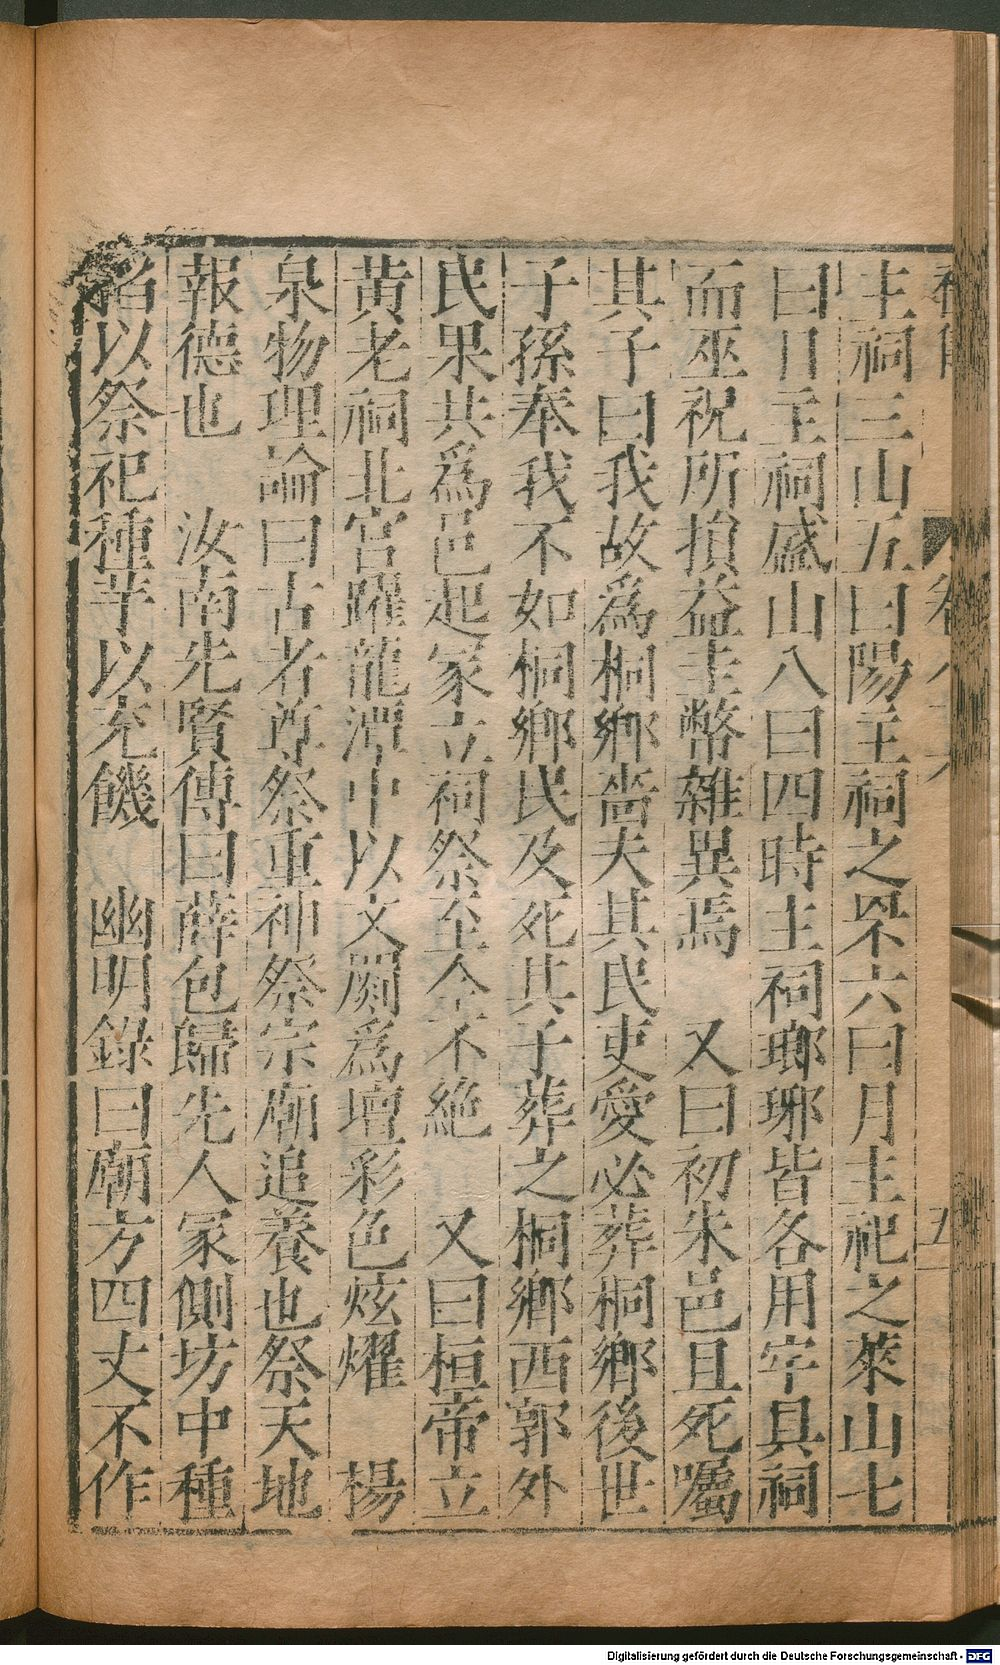 主祠三山五曰陽主祠之罘六曰月主祀之萊山七
曰日主祠盛山八曰四時主祠瑯琊皆各用牢具祠
而巫祝所損益圭幣雜異焉　又曰初朱邑且死囑
其子曰我故爲桐鄉嗇夫其民吏愛必葬桐鄉後世
子孫奉我不如桐鄉民及死其子葬之桐鄉西郭外
民果共爲邑起冢立祠祭至今不絶　又曰桓帝立
黃老祠北宮躍龍潭中以文罽爲壇彩色炫燿　楊
泉物理論曰古者尊祭重神祭宗廟追養也祭天地
報德也　汝南先賢傳曰薛包歸先人冢側坊中種
稻以祭祀種芋以充饑　幽明錄曰廟方四丈不作
五
Digitalisierung gefördert durch die Deutsche Forschungsgemeinschaft - DFG